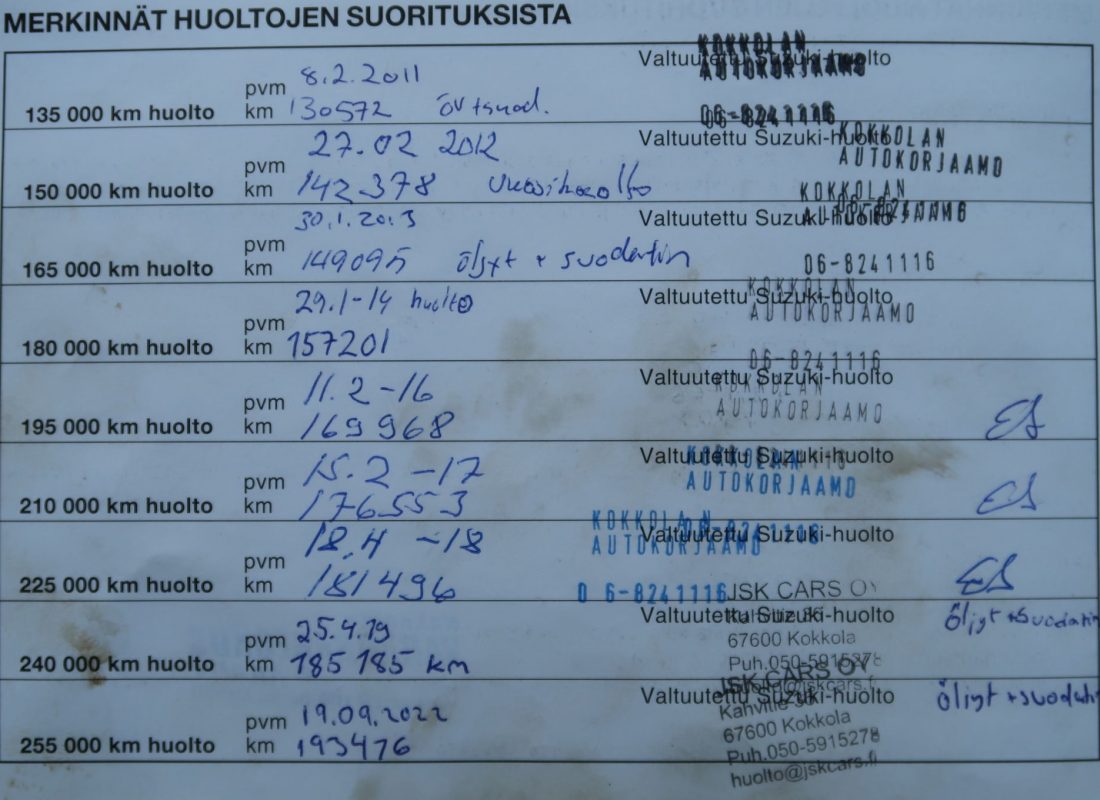 MERKINNÄT HUOLTOJEN SUORITUKSISTA
135 000 km huolto
pvm 8.2.2011
km 130572 öv+suod.
Valtuutettu Suzuki-huolto
KOKKOLAN
AUTOKORJAAMO
06-8241116
150 000 km huolto
pvm 27.02 2012
km 142378 vuosihuolto
Valtuutettu Suzuki-huolto
KOKKOLAN
AUTOKORJAAMO
06-8241116
165 000 km huolto
pvm 30.1.2013
km 149095 öljyt + suodatin
Valtuutettu Suzuki-huolto
KOKKOLAN
AUTOKORJAAMO
06-8241116
180 000 km huolto
pvm 29.1-14 huolto
km 157201
Valtuutettu Suzuki-huolto
KOKKOLAN
AUTOKORJAAMO
06-8241116
195 000 km huolto
pvm 11.2-16
km 169968
Valtuutettu Suzuki-huolto
KOKKOLAN
AUTOKORJAAMO
210 000 km huolto
pvm 15.2 -17
km 176553
Valtuutettu Suzuki-huolto
KOKKOLAN
AUTOKORJAAMO
225 000 km huolto
pvm 18.4 -18
km 181496
Valtuutettu Suzuki-huolto
KOKKOLAN
AUTOKORJAAMO
06-8241116
240 000 km huolto
pvm 25.4.19
km 185185 km
Valtuutettu Suzuki-huolto
öljyt +suodatin
JSK CARS OY
67600 Kokkola
Puh.050-5915278
255 000 km huolto
pvm 19.09.2022
km 193476
Valtuutettu Suzuki-huolto
öljyt +suodatin
JSK CARS OY
67600 Kokkola
Puh.050-5915278
huolto@jskcars.fi